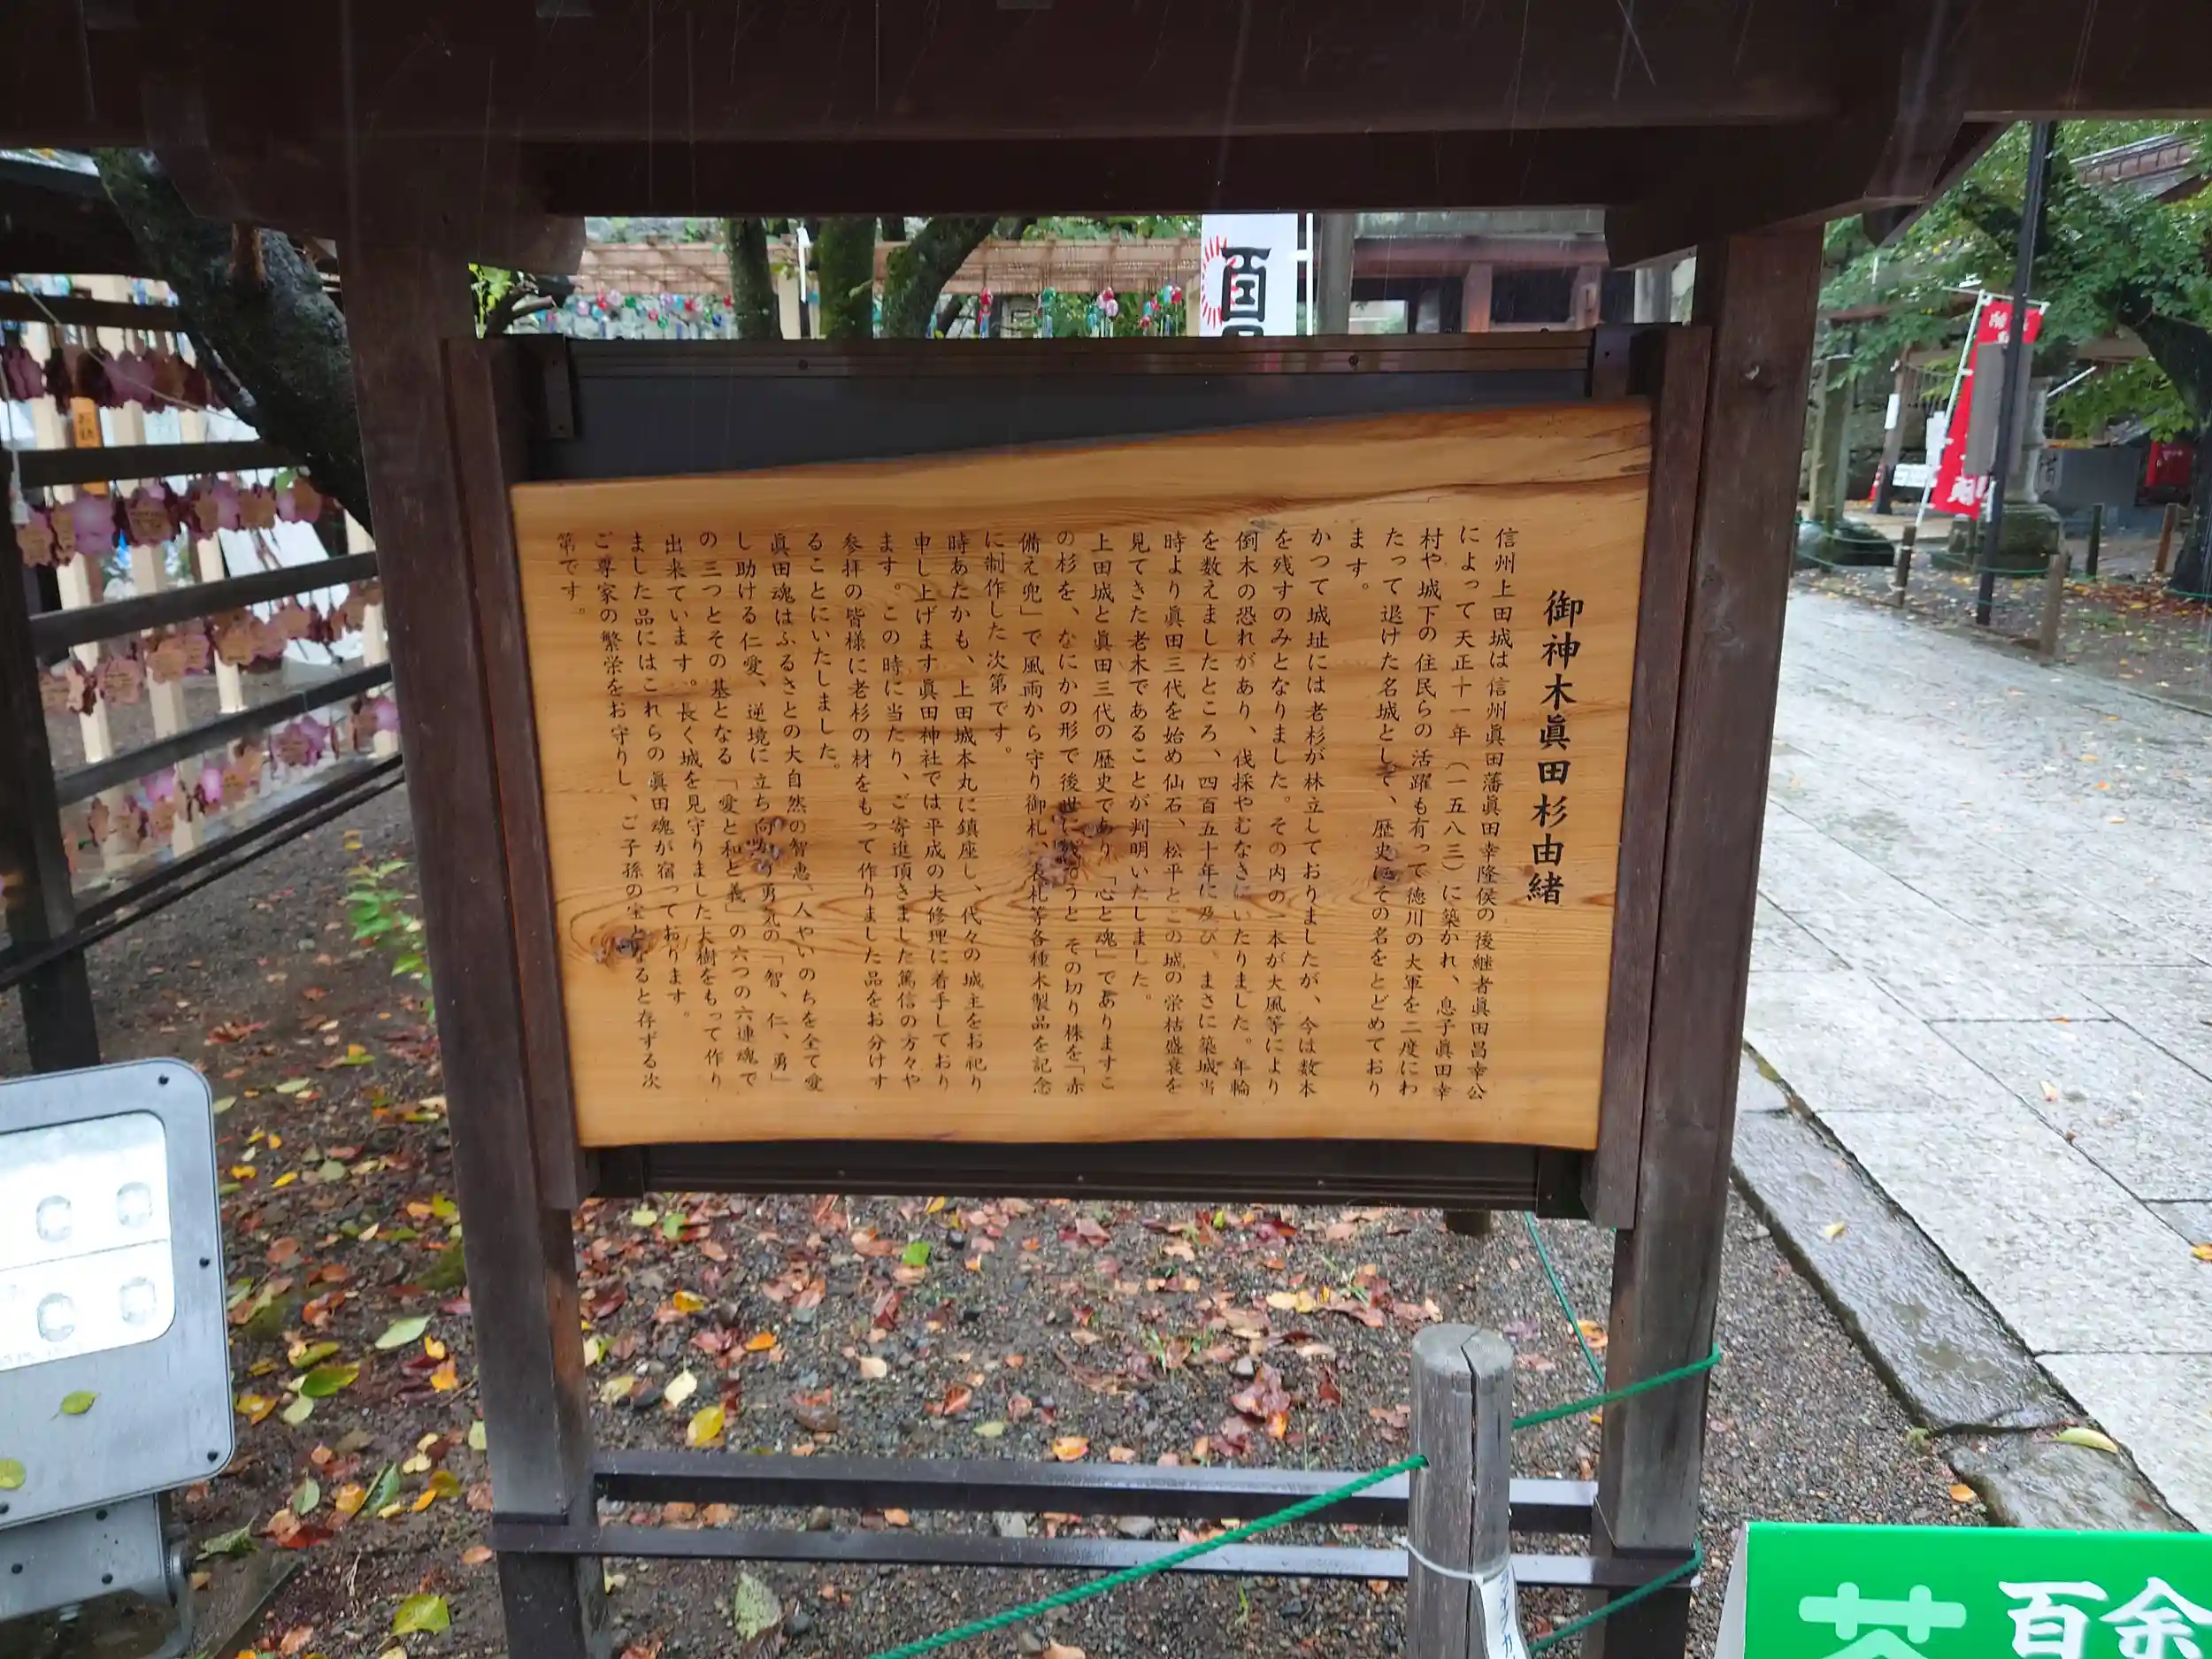 御神木眞田杉由緒
信州上田城は信州眞田藩眞田幸隆侯の後継者眞田昌幸公
によって天正十一年（一五八三）に築かれ、息子眞田幸
村や城下の住民らの活躍も有って徳川の大軍を二度にわ
たって退けた名城として、歴史にその名をとどめており
ます。
かつて城址には老杉が林立しておりましたが、今は数本
を残すのみとなりました。その内の一本が大風等により
倒木の恐れがあり、伐採やむなきにいたりました。年輪
を数えましたところ、四百五十年に及び、まさに築城当
時より眞田三代を始め仙石、松平とこの城の栄枯盛衰を
見てきた老木であることが判明いたしました。
上田城と眞田三代の歴史であり「心と魂」でありますこ
の杉を、なにかの形で後世に残そうと その切り株を「赤
備え兜」で風雨から守り御札、表札等各種木製品を記念
に制作した次第です。
時あたかも、上田城本丸に鎮座し、代々の城主をお祀り
申し上げます眞田神社では平成の大修理に着手しており
ます。この時に当たり、ご寄進頂きました篤信の方々や
参拝の皆様に老杉の材をもって作りました品をお分けす
ることにいたしました。
眞田魂はふるさとの大自然の智恵、人やいのちを全て愛
し助ける仁愛、逆境に立ち向かう勇気の「智、仁、勇」
の三つとその基となる「愛と和と義」の六つの六連魂で
出来ています。長く城を見守りました大樹をもって作り
ました品にはこれらの眞田魂が宿っております。
ご尊家の繁栄をお守りし、ご子孫の宝となると存ずる次
第です。
百余